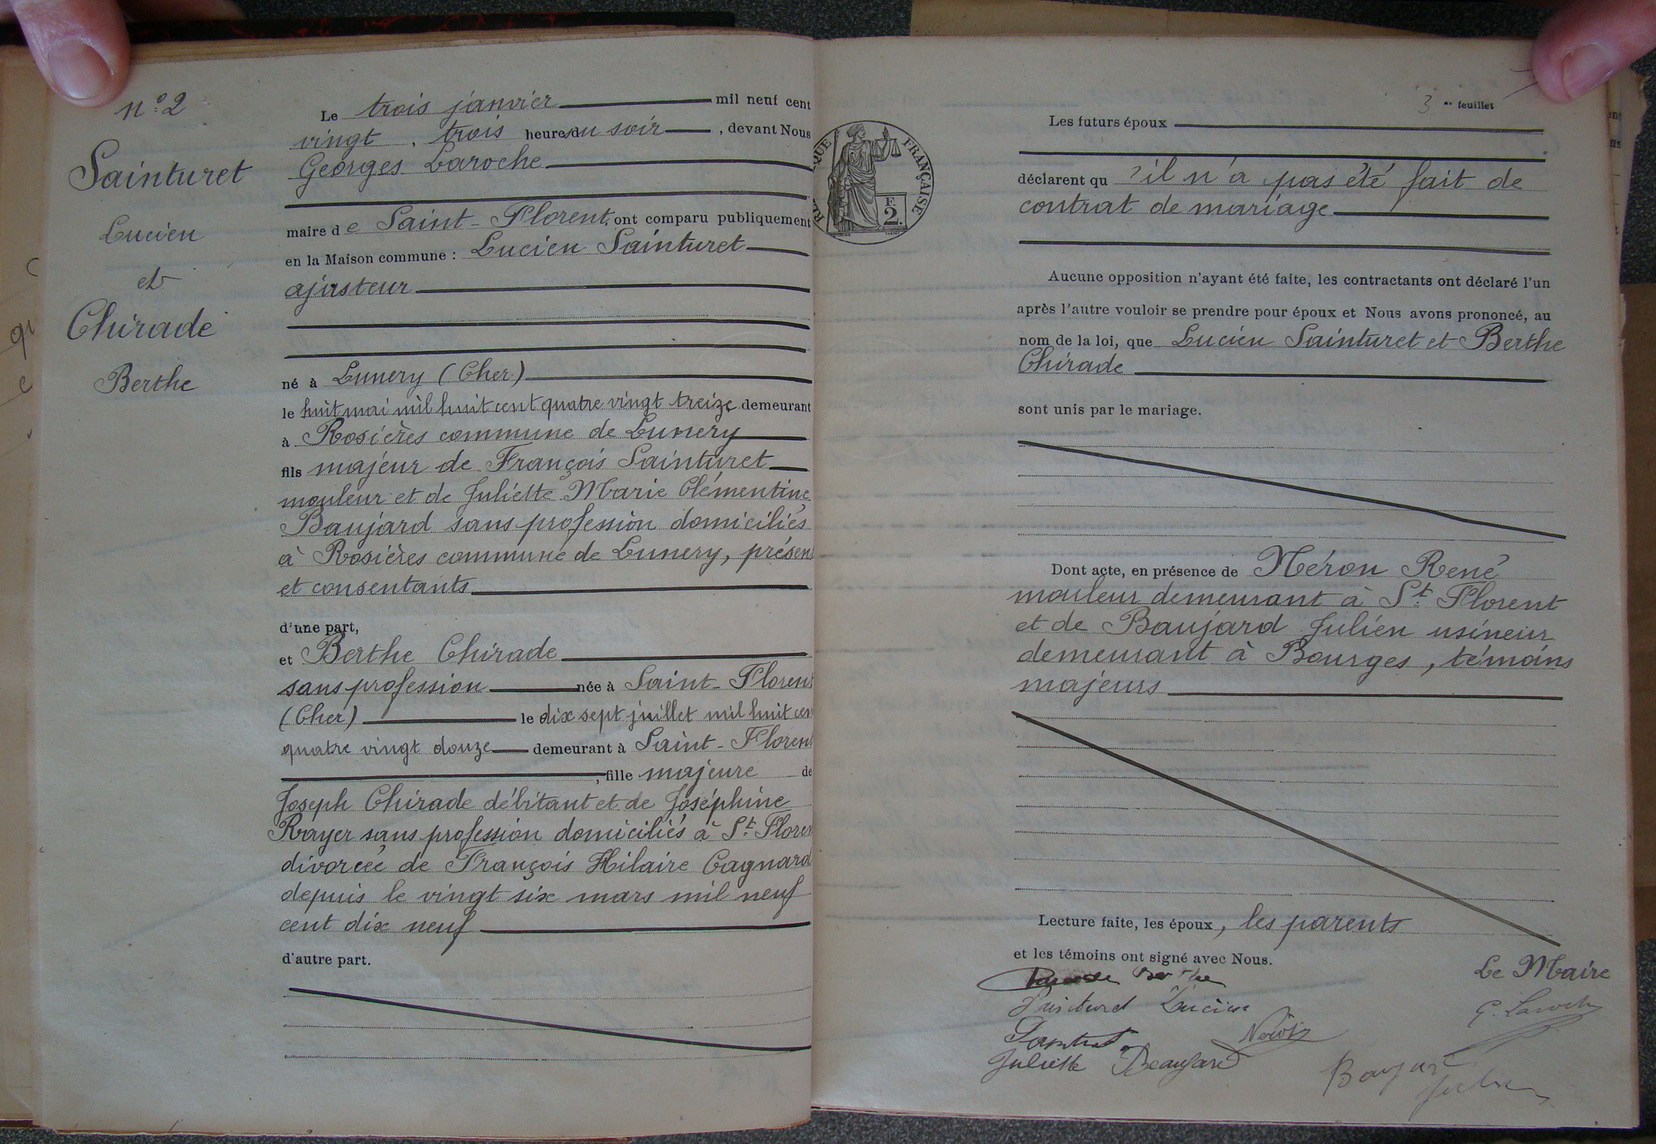 n° 2
Sainturet
Lucien
et
Chirade
Berthe
Le trois janvier mil neuf cent
vingt, trois heures du soir, devant Nous
Georges Laroche
maire de Saint-Florent, ont comparu publiquement
en la Maison commune : Lucien Sainturet
ajusteur
né à Lunery (Cher)
le huit mai mil huit cent quatre vingt treize demeurant
à Rosières commune de Lunery
fils majeur de François Sainturet
mouleur et de Juliette Marie Clémentine
Baujard sans profession domiciliés
à Rosières commune de Lunery, présen
et consentants
d'une part,
et Berthe Chirade
sans profession née à Saint-Florent
(Cher) le dix sept juillet mil huit cen
quatre vingt douze demeurant à Saint-Florent
, fille majeure de
Joseph Chirade débitant et de Joséphine
Rayer sans profession domiciliés à St Floren
divorcée de François Hilaire Gagnard
depuis le vingt six mars mil neuf
cent dix neuf
d'autre part.
FRANÇAISE
F.
2.
3 me feuillet
Les futurs époux
déclarent qu'il n'a pas été fait de
contrat de mariage
Aucune opposition n'ayant été faite, les contractants ont déclaré l'un
après l'autre vouloir se prendre pour époux et Nous avons prononcé, au
nom de la loi, que Lucien Sainturet et Berthe
Chirade
sont unis par le mariage.
Dont acte, en présence de Néron René
mouleur demeurant à St Florent
et de Baujard Julien usineur
demeurant à Bourges, témoins
majeurs
Lecture faite, les époux, les parents
et les témoins ont signé avec Nous.
Le Maire
Berthe
Sainturet Lucien
G. Laroche
Juliette Beaujard
Baujard